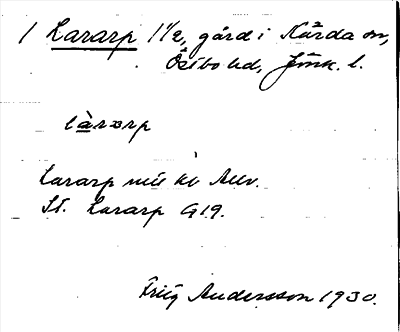 1 Lararp 1 1/2, gård i Kärda sn,
Östbo hd, Jönk. l.
làrarp
Lararp
St. Lararp G19.
Andersson 1930.